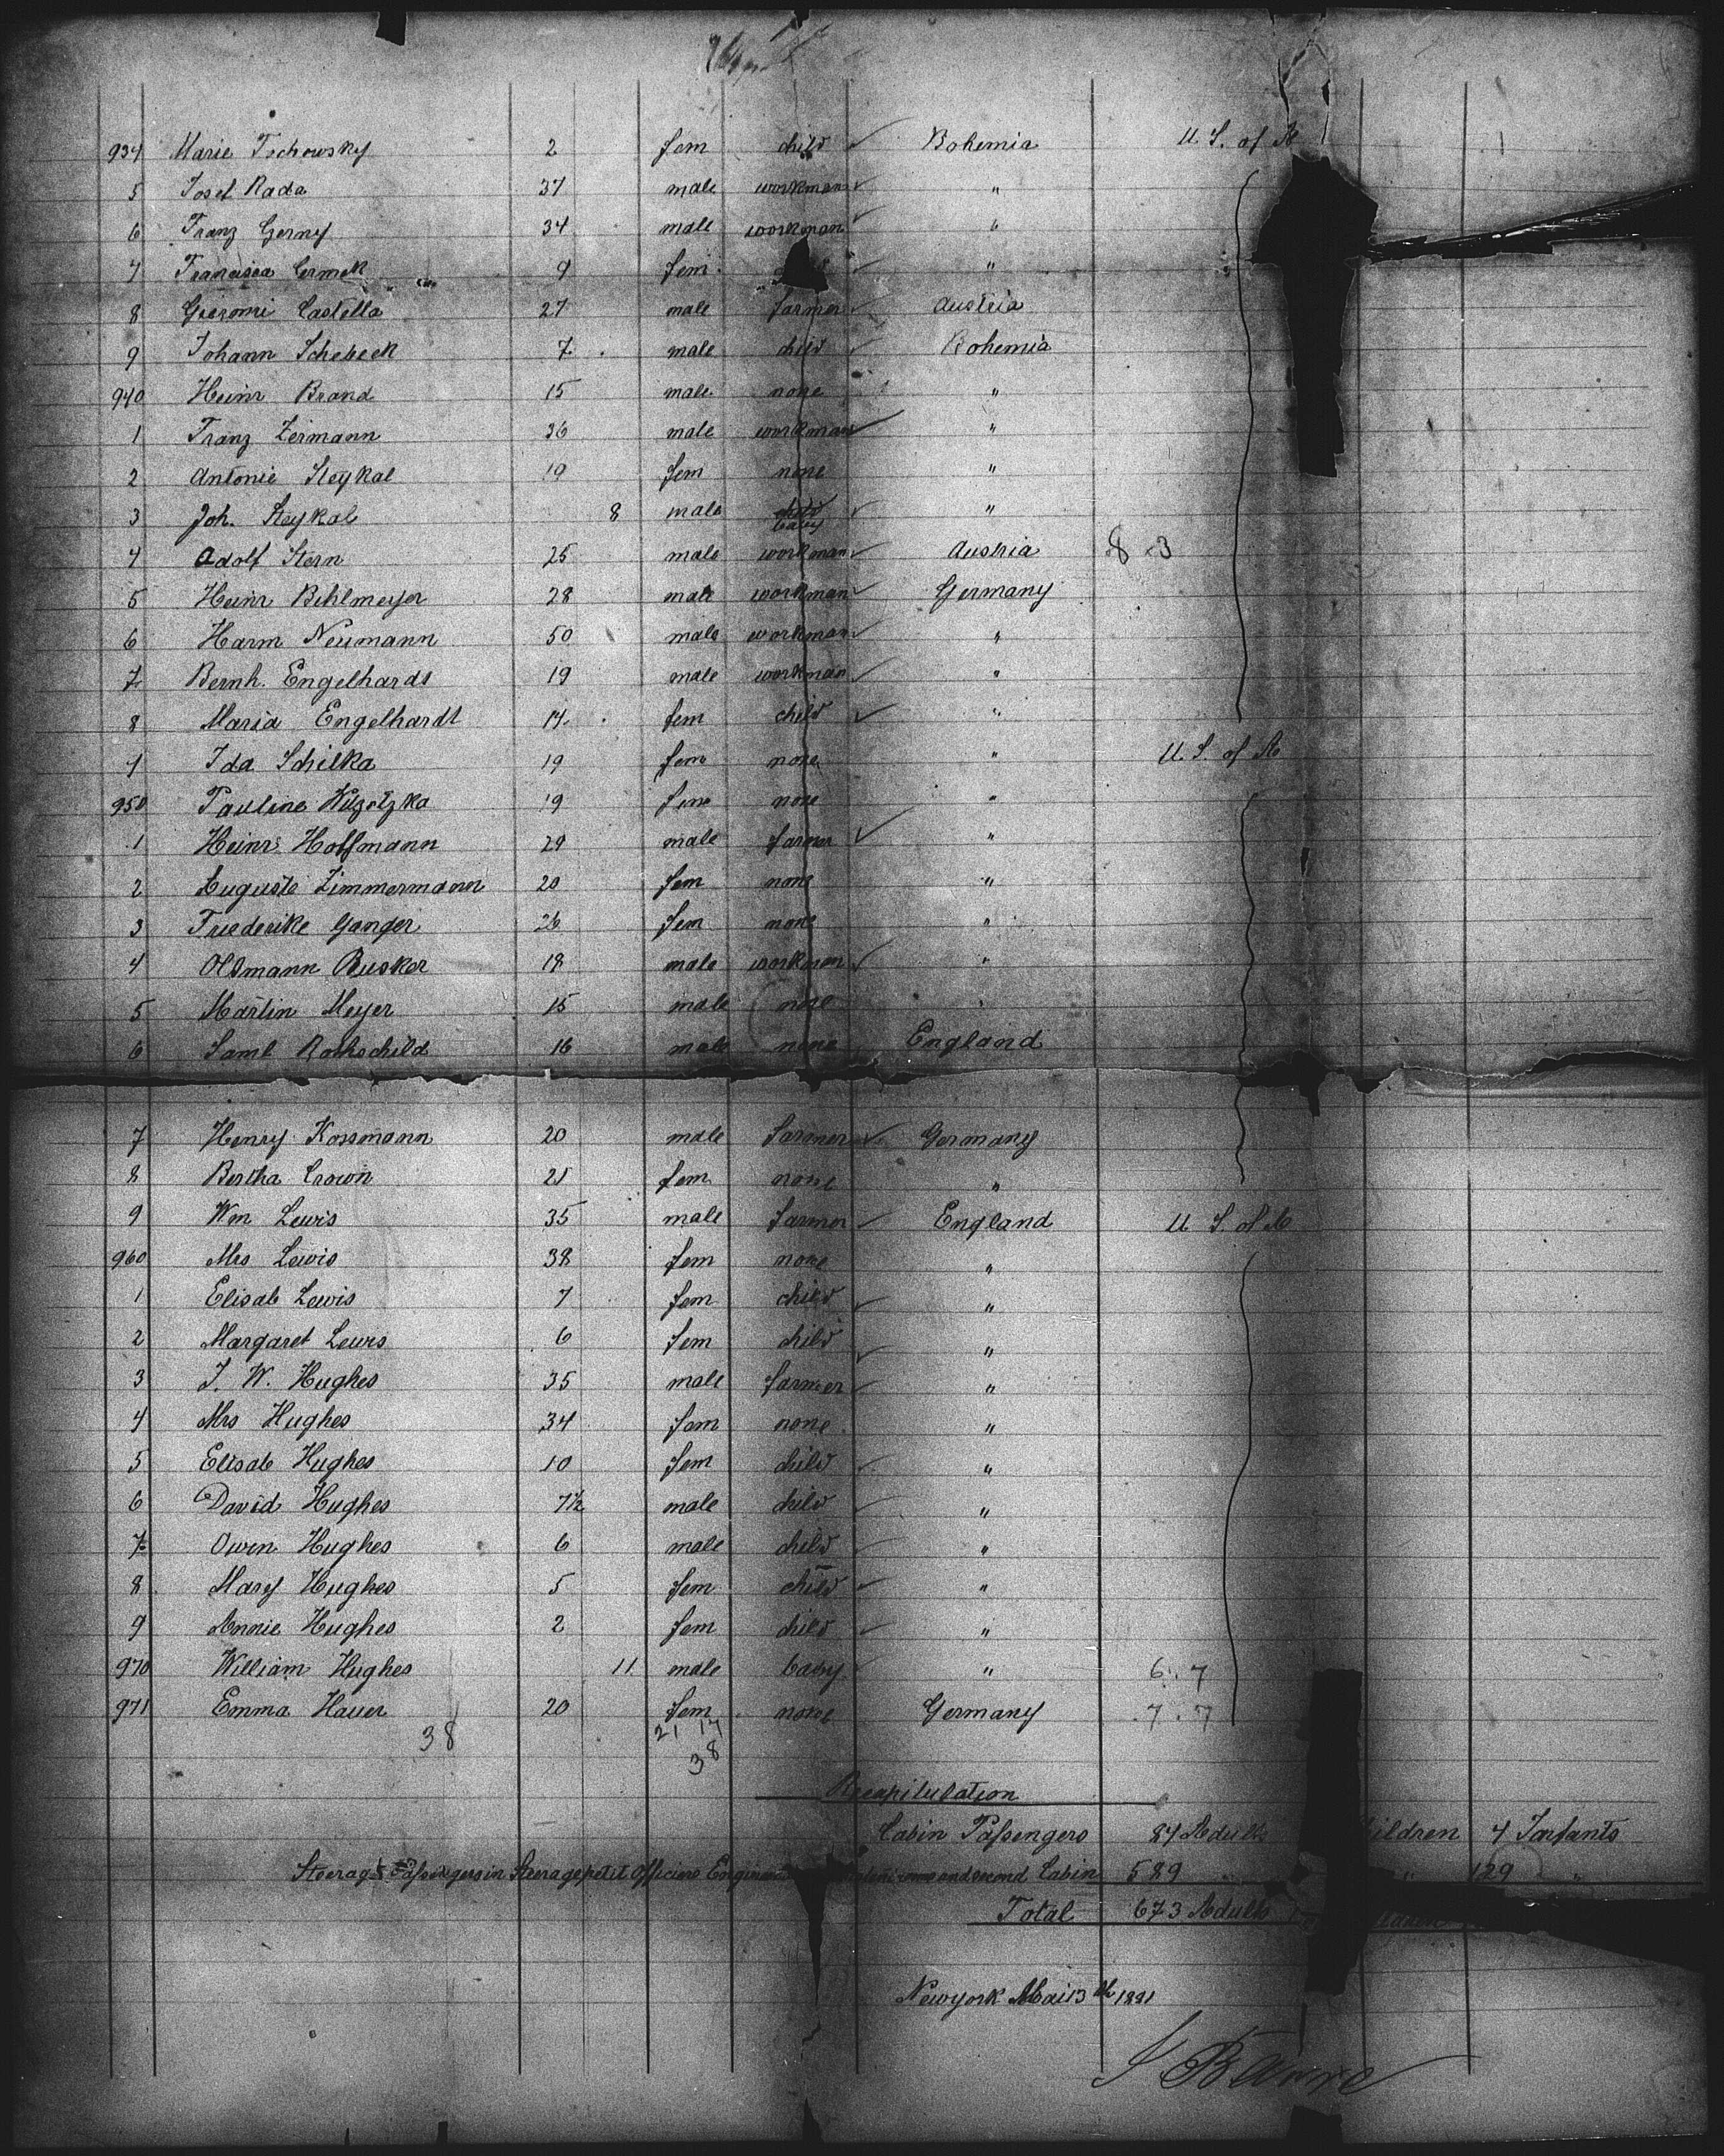 934 Marie Tschowsky 2 fem child Bohemia U. S. of A
5 Josef Rada 37 male workman "
6 Franz Gerny 34 male workman "
7 Francisca Cermak 9 fem "
8 Gieromi Castella 27 male farmer Austria
9 Johann Schebeck 7 male child Bohemia
940 Heinr Brand 15 male none "
1 Franz Zeimann 36 male workman "
2 Antonie Steykal 19 fem none "
3 Joh. Steykal 8 male child baby "
4 Adolf Stern 25 male workman Austria 8 3
5 Heinr Behlmeyer 28 male workman Germany
6 Harm Neumann 50 male workman "
7 Bernh. Engelhardt 19 male workman "
8 Maria Engelhardt 14 fem child "
9 Ida Schilka 19 fem none " U. S. of A
950 Pauline 19 fem none "
1 Heinr. Hoffmann 29 male farmer "
2 Auguste Zimmermann 20 fem none "
3 Friederike Ganger 26 fem none "
4 Oltmann Busker 18 male workman "
5 Martin Meyer 15 male none "
6 Saml Rothschild 16 male none England
7 Henry Kossmann 20 male farmer Germany
8 Bertha Crown 21 fem none "
9 Wm Lewis 35 male farmer England U. S. of A
960 Mrs Lewis 38 fem none "
1 Elisab Lewis 7 fem child "
2 Margaret Lewis 6 fem child "
3 J. W. Hughes 35 male farmer "
4 Mrs Hughes 34 fem none "
5 Elisab Hughes 10 fem child "
6 David Hughes 7½ male child "
7 Owen Hughes 6 male child "
8 Mary Hughes 5 fem child "
9 Annie Hughes 2 fem child "
970 William Hughes 11 male baby " 6 . 7
971 Emma Hauer 20 fem none Germany 7 . 7
38 21 17
38
Recapitulation
Cabin Passengers 84 Adults 4 Infants
Steerage Passengers in Steerage petit Officiers and second Cabin 589 129 "
Total 673 Adults
Newyork Mai 13th 1881